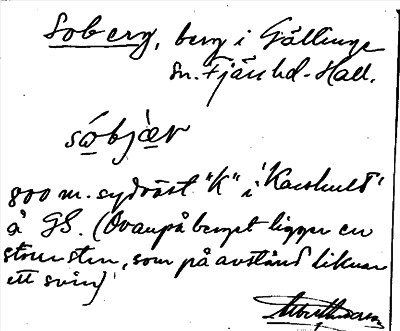 Soberg, berg i Gällinge
sn. Fjäre hd. Hall.
sobjær
800 m. sydväst "K" i 'Karshult'
å GS. (Ovanpå berget ligger en
stor sten, som på avstånd liknar
ett svin)